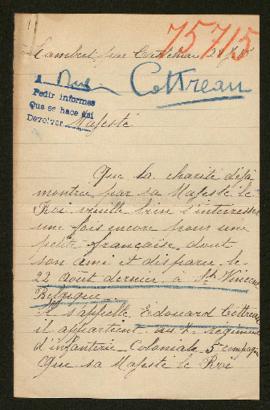 75715
Cottreau
Pedir informes
Que se hace aqui
Devolver
Majesté
Que la charité déjà
montrée par sa Majesté le
Roi veuille bien s'intéresser
une fois encore pour une
petite française dont
son ami est disparu le
22 août dernier a St Vincent
Belgique
il s'appelle Edouard Cottreau
il appartient au 7e régiment
d'infanterie Coloniale 5e compagnie
Que sa Majesté le Roi